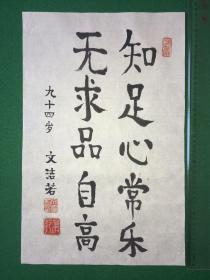 知足心常乐
无求品自高
九十四岁 文洁若